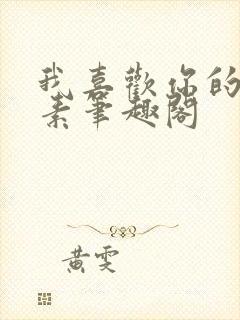 我喜歡你的
素筆趣閣
黃雯